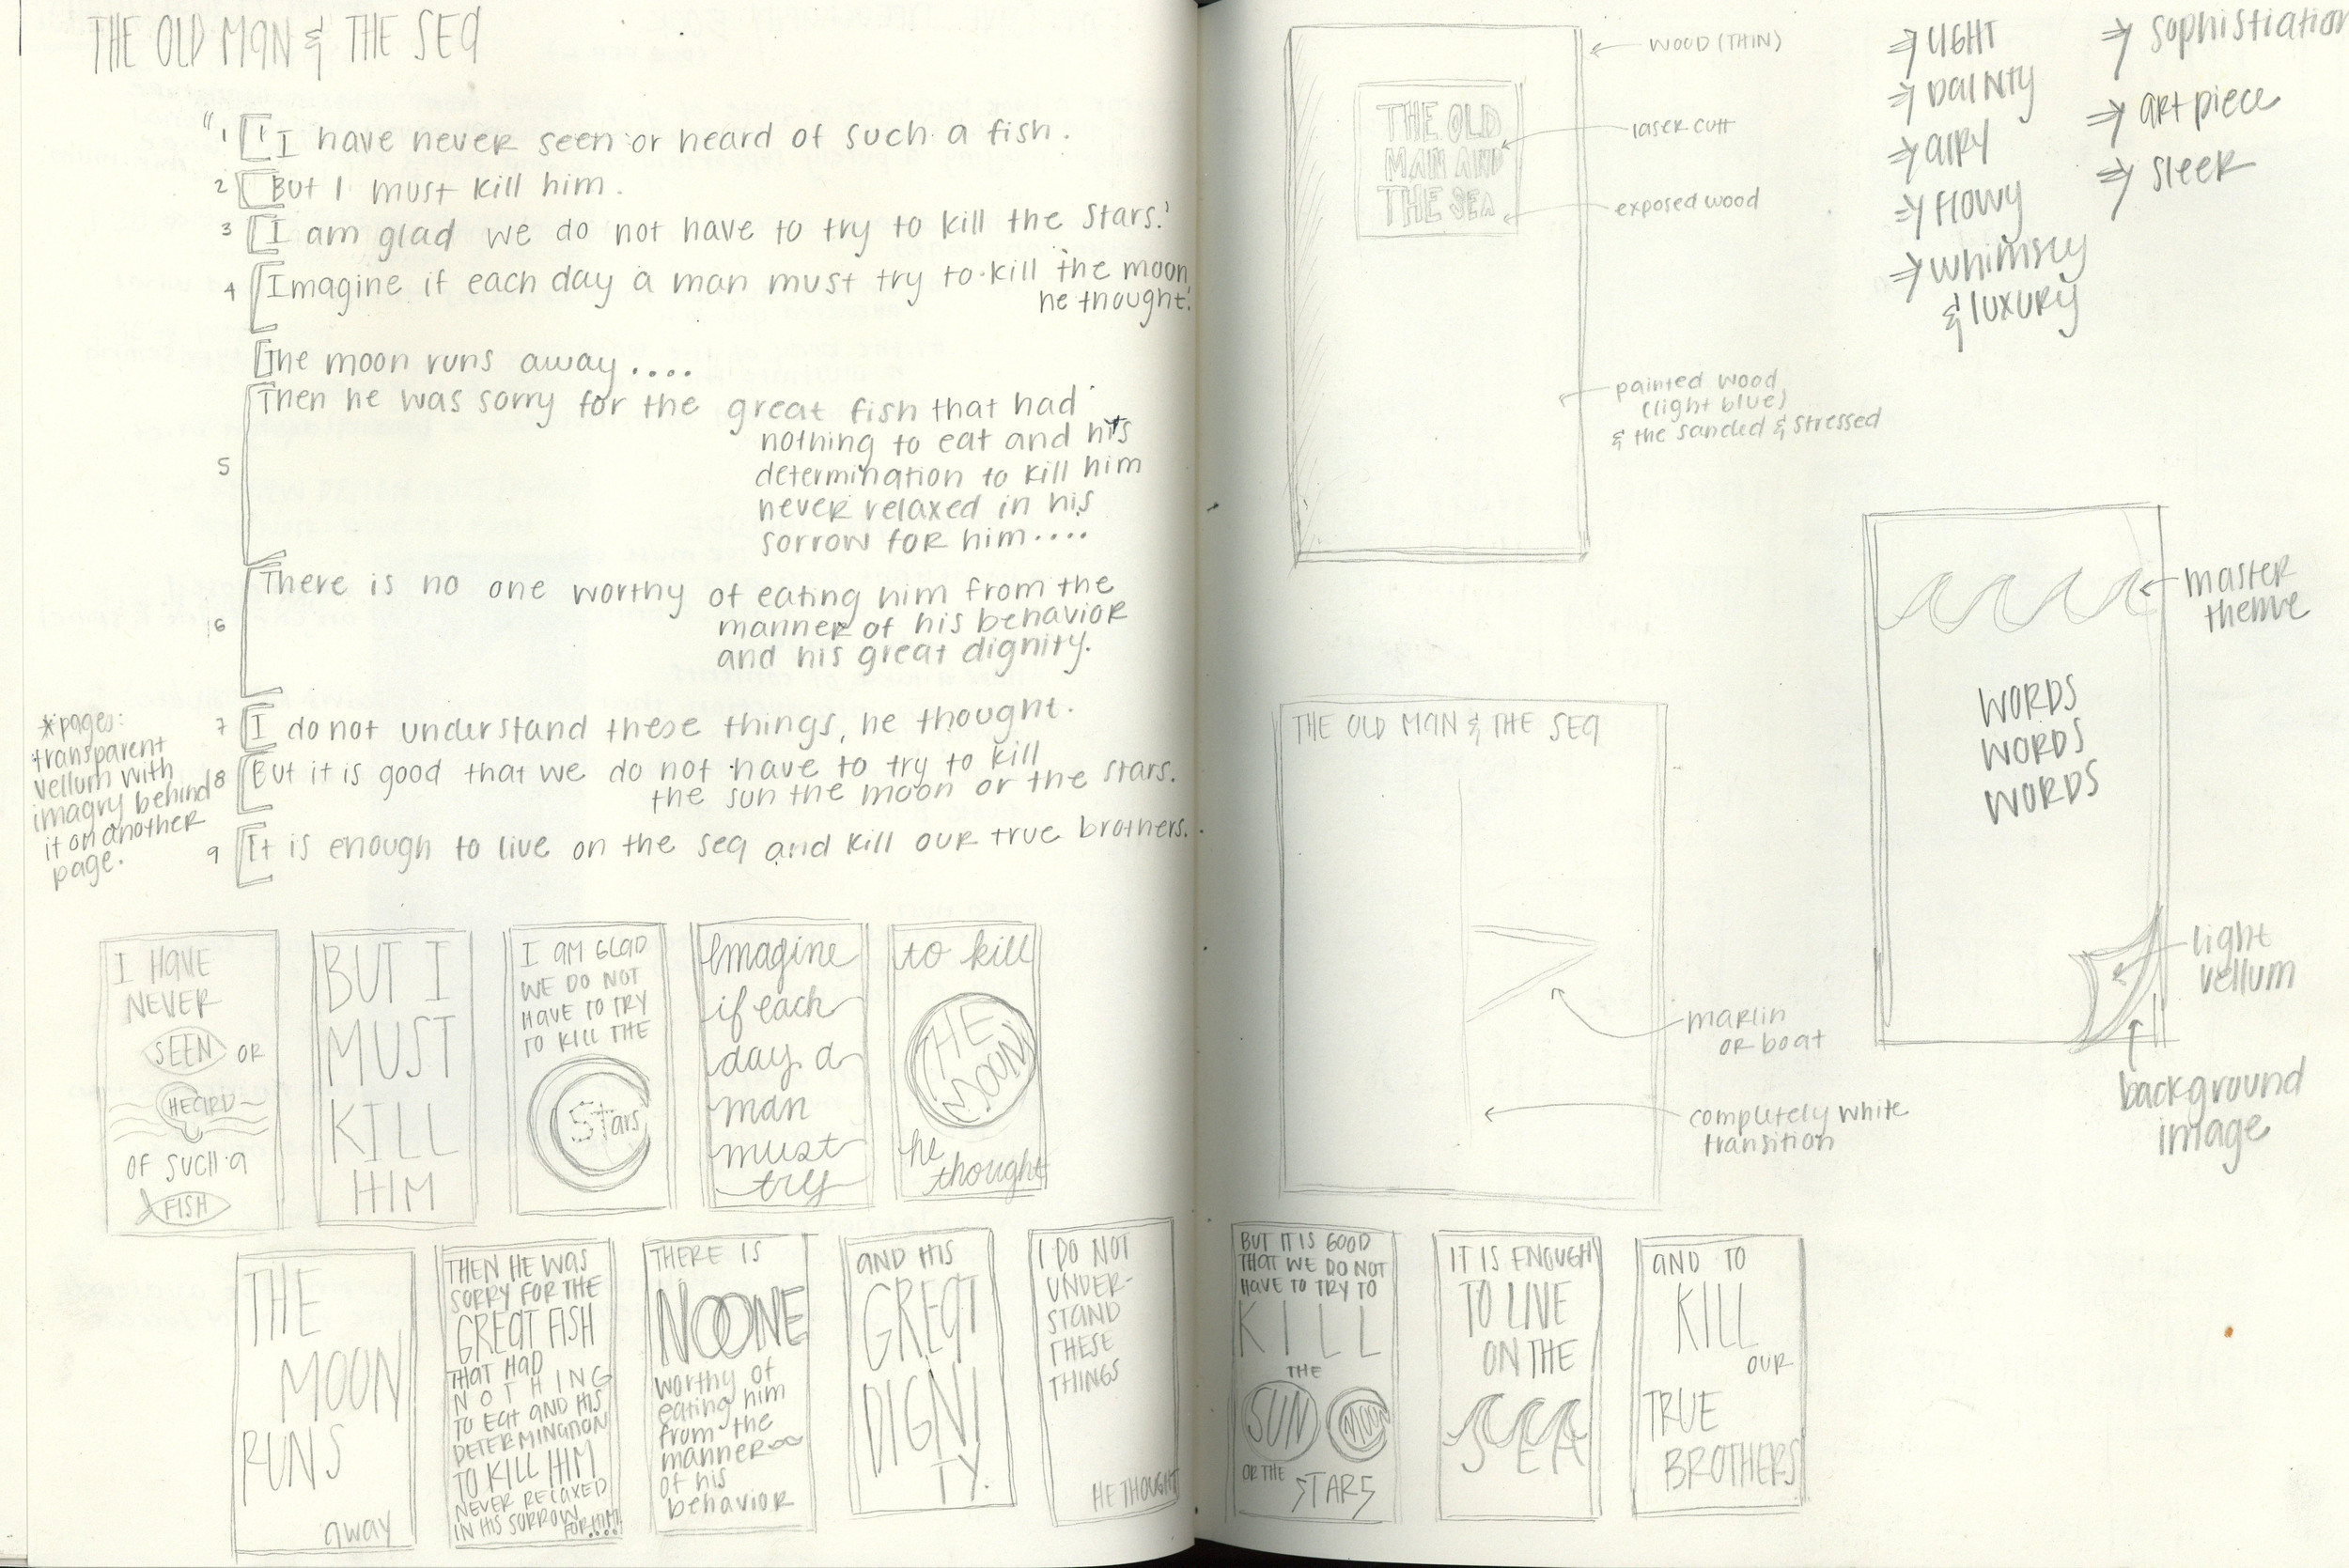 THE OLD MAN & THE SEA
"1 ['I have never seen or heard of such a fish.
2 [But I must kill him.
3 [I am glad we do not have to try to kill the stars.'
4 [Imagine if each day a man must try to kill the moon,
he thought.'
[The moon runs away....
5 [Then he was sorry for the great fish that had
nothing to eat and his
determination to kill him
never relaxed in his
sorrow for him....
6 [There is no one worthy of eating him from the
manner of his behavior
and his great dignity.
7 [I do not understand these things, he thought.
8 [But it is good that we do not have to try to kill
the sun the moon or the stars.
9 [It is enough to live on the sea and kill our true brothers.
*pages:
transparent
vellum with
imagry behind
it on another
page.
I HAVE
NEVER
SEEN OR
HEARD
OF SUCH A
FISH
BUT I
MUST
KILL
HIM
I AM GLAD
WE DO NOT
HAVE TO TRY
TO KILL THE
Stars
Imagine
if each
day a
man
must
try
to kill
THE
MOON
he
thought
THE
MOON
RUNS
away
THEN HE WAS
SORRY FOR THE
GREAT FISH
THAT HAD
NOTHING
TO EAT AND HIS
DETERMINATION
TO KILL HIM
NEVER RELAXED
IN HIS SORROW
FOR HIM....
THERE IS
NO ONE
worthy of
eating him
from the
manner
of his
behavior
AND HIS
GREAT
DIGNI
TY.
I DO NOT
UNDER-
STAND
THESE
THINGS
HE THOUGHT
THE OLD
MAN AND
THE SEA
WOOD (THIN)
laser cutt
exposed wood
painted wood
(light blue)
& the sanded & stressed
⇒ LIGHT
⇒ DAINTY
⇒ AIRY
⇒ FLOWY
⇒ WHIMSEY
& LUXURY
⇒ sophistiation
⇒ art piece
⇒ sleek
WORDS
WORDS
WORDS
master
theme
light
vellum
background
image
THE OLD MAN & THE SEA
marlin
or boat
completely white
transition
BUT IT IS GOOD
THAT WE DO NOT
HAVE TO TRY TO
KILL
THE
SUN MOON
OR THE
STARS
IT IS ENOUGH
TO LIVE
ON THE
SEA
AND TO
KILL
OUR
TRUE
BROTHERS